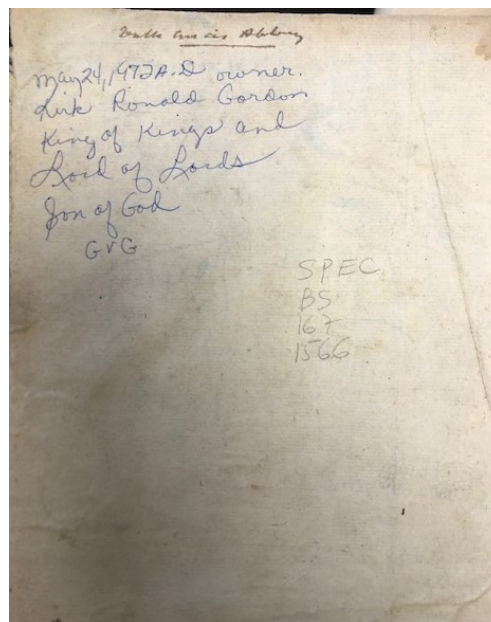 May 24, 1972 A.D owner.
Kirk Ronald Gordon
King of Kings and
Lord of Lords
Son of God
GVG
SPEC
BS
167
1566